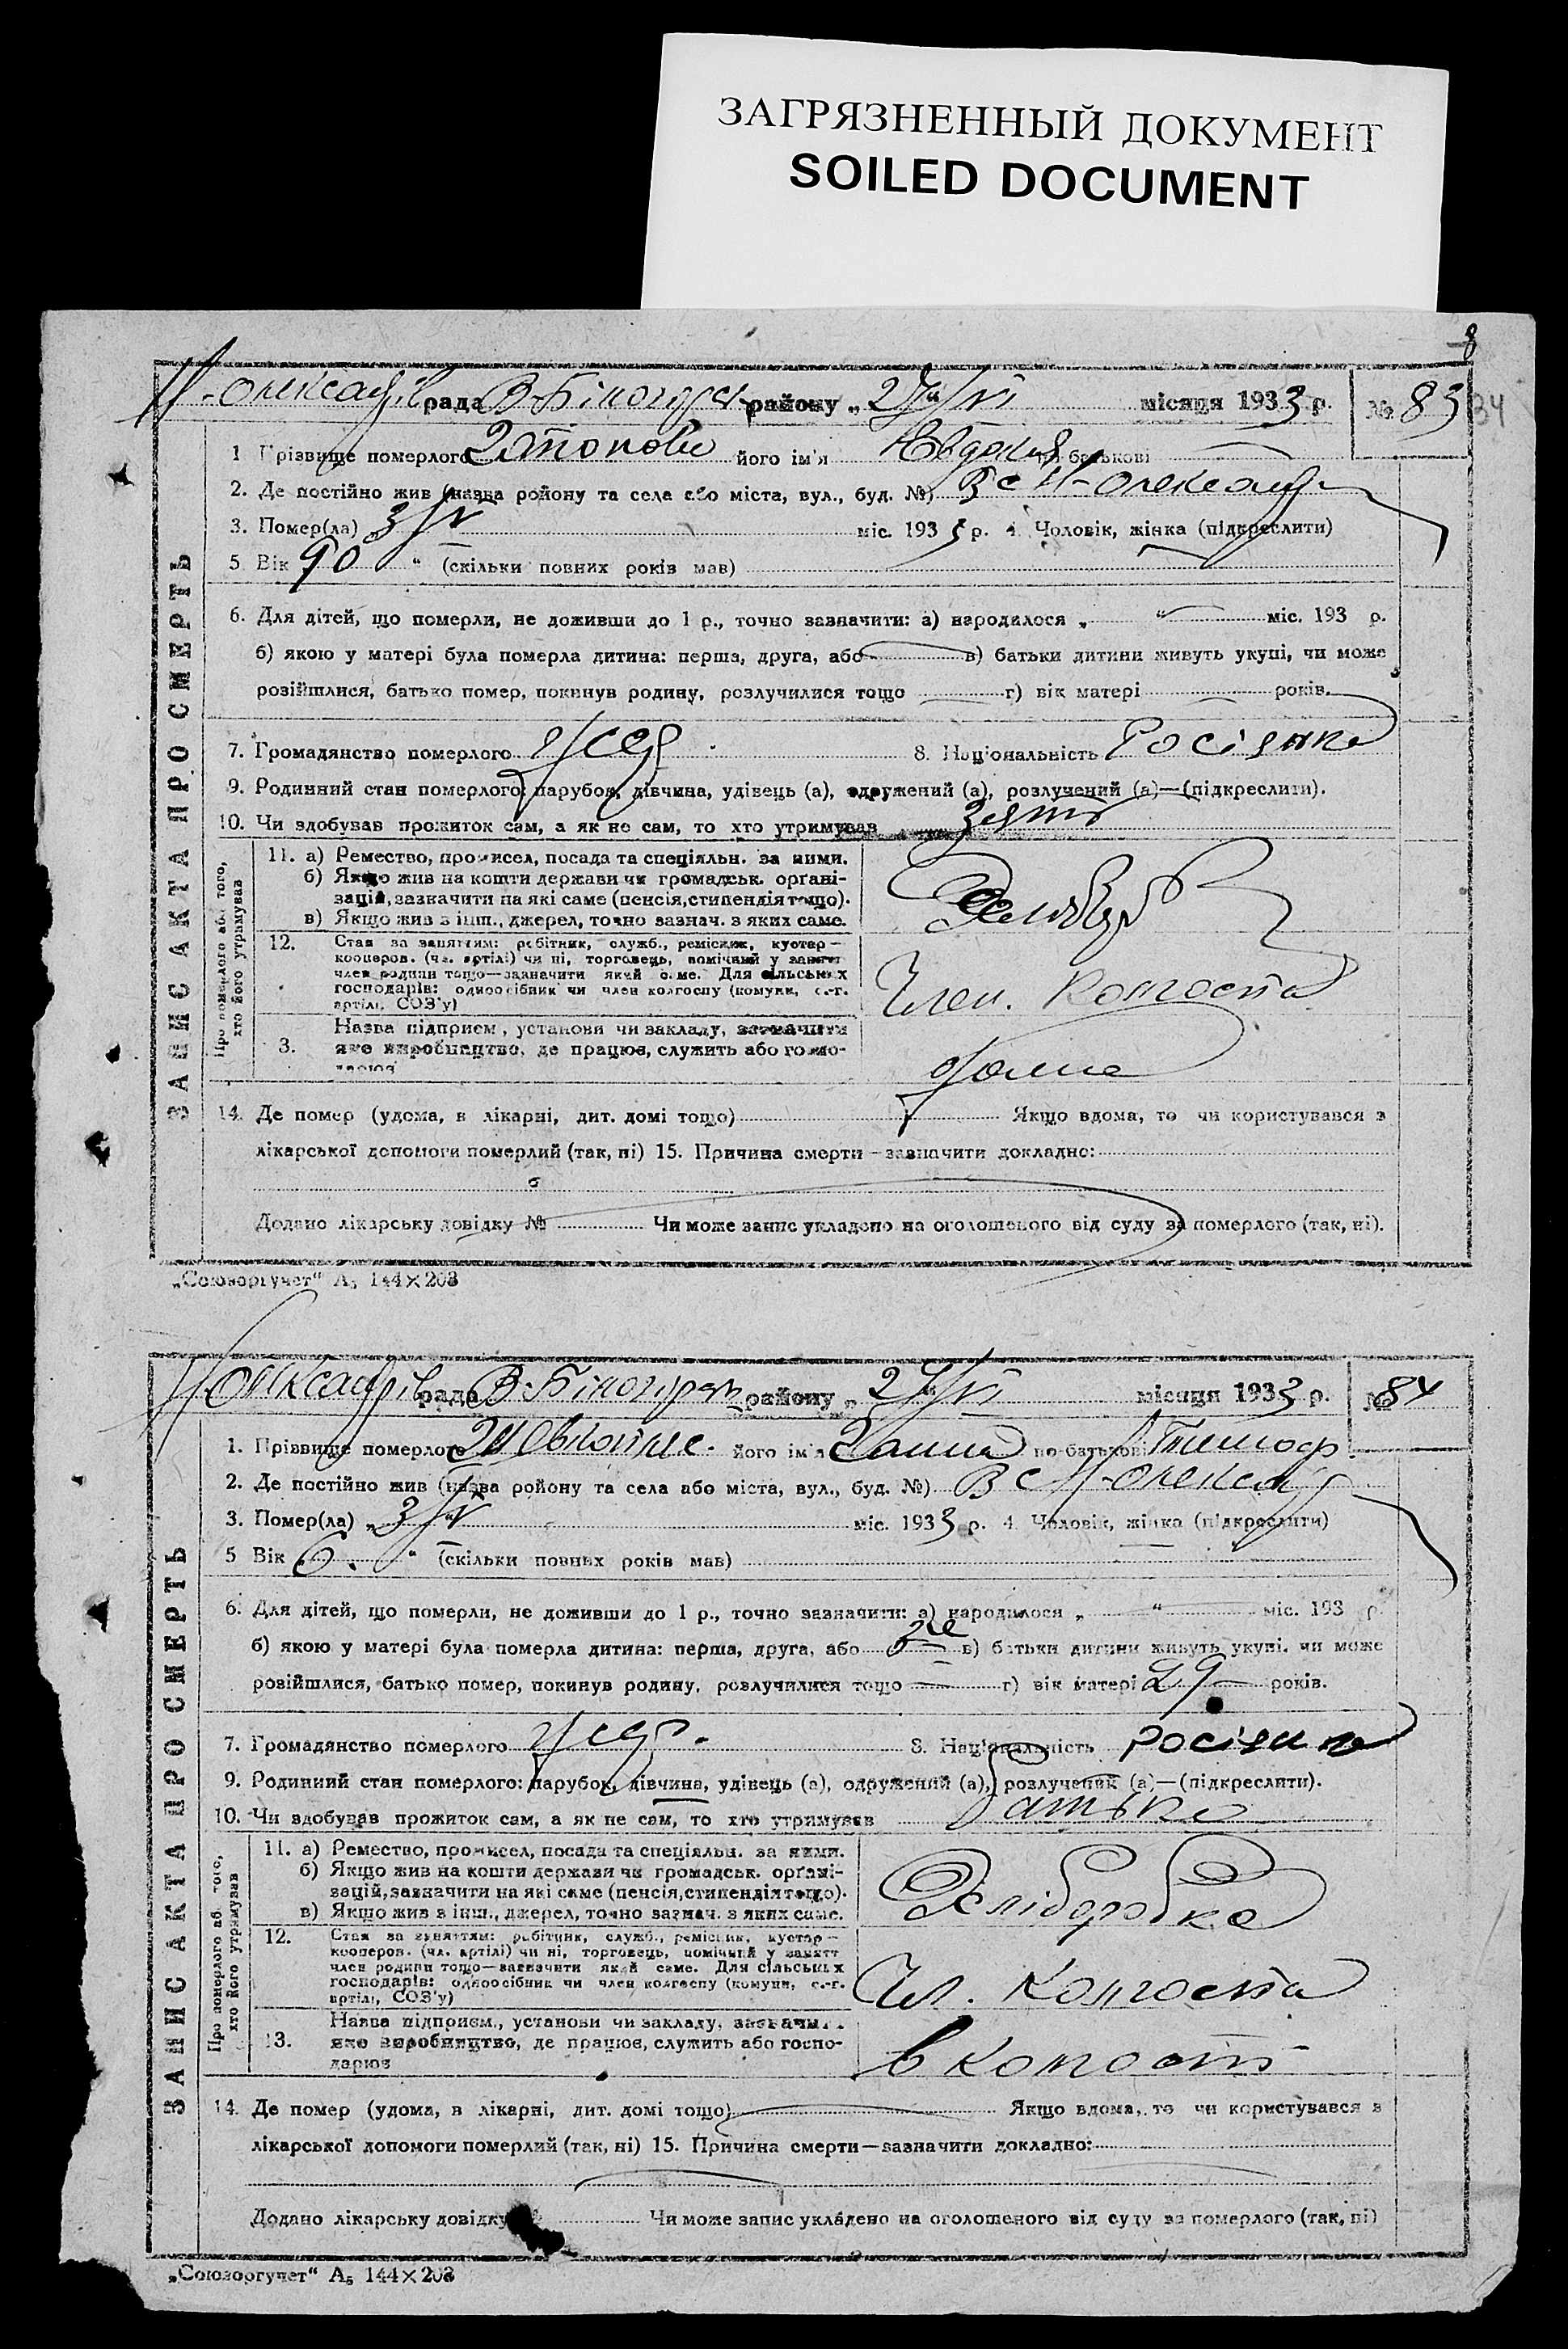 ЗАГРЯЗНЕННЫЙ ДОКУМЕНТ
SOILED DOCUMENT
8
рада В-Білогірськ району „27“ VI місяця 1933 р. № 83 34
1 Прізвище померлого його ім'я Евдокия по батькові
2. Де постійно жив (назва ройону та села або міста, вул., буд. №) В с Н-олександр
3. Помер(ла) „3/V міс. 1933 р. 4 Чоловік, жінка (підкреслити)
5 Вік 90 “ (скільки повних років мав)
6. Для дітей, що померли, не доживши до 1 р., точно зазначити: а) народилося „ “ міс. 193 р.
б) якою у матері була померла дитина: перша, друга, або в) батьки дитини живуть укупі, чи може
розійшлися, батько помер, покинув родину, розлучилися тощо г) вік матері років.
7. Громадянство померлого 8. Національність Росіянка
9. Родинний стан померлого: парубок, дівчина, удівець (а), одружений (а), розлучений (а)—(підкреслити).
10. Чи здобував прожиток сам, а як не сам, то хто утримував зять
ЗАПИС АКТА ПРО СМЕРТЬ
Про померлого або того,
хто його утримував
11. а) Ремество, промисел, посада та спеціяльн. за ними.
б) Якщо жив на кошти держави чи громадськ. орґані-
зацій, зазначити на які саме (пенсія, стипендія тощо).
в) Якщо жив з інш., джерел, точно зазнач. з яких саме.
12. Стан за заняттям: робітник, служб., ремісник, кустар—
кооперов. (чл. артілі) чи ні, торговець, помічний у занятт
член родини тощо—зазначити який саме. Для сільських
господарів: одноосібник чи член колгоспу (комуни, с.-г.
артілі, СОЗ'у)
Член. Колгоспа
Назва підприєм., установи чи закладу, зазначити
3. яке виробництво, де працює, служить або госпо-
дарює
14. Де помер (удома, в лікарні, дит. домі тощо) Якщо вдома, то чи користувався з
лікарської допомоги померлий (так, ні) 15. Причина смерти—зазначити докладно:
Додано лікарську довідку № Чи може запис укладено на оголошеного від суду за померлого (так, ні).
„Союзоргучет“ А5 144×203
рада В-Білогірськ району „27“ VI місяця 1933 р. № 84
1. Прізвище померлого його ім'я Ганна по-батькові Тимоф.
2. Де постійно жив (назва ройону та села або міста, вул., буд. №) В с Н-олександр
3. Помер(ла) „3/V“ міс. 1933 р. 4 Чоловік, жінка (підкреслити)
5 Вік 6. “ (скільки повних років мав)
6. Для дітей, що померли, не доживши до 1 р., точно зазначити: а) народилося „ “ міс. 193 р.
б) якою у матері була померла дитина: перша, друга, або 3е в) батьки дитини живуть укупі, чи може
розійшлися, батько помер, покинув родину, розлучилися тощо г) вік матері 29 років.
7. Громадянство померлого 8. Національність росіянка
9. Родинний стан померлого: парубок, дівчина, удівець (а), одружений (а), розлучений (а)—(підкреслити).
10. Чи здобував прожиток сам, а як не сам, то хто утримував батько
ЗАПИС АКТА ПРО СМЕРТЬ
Про померлого аб. того,
хто його утримував
11. а) Ремество, промисел, посада та спеціяльн. за ними.
б) Якщо жив на кошти держави чи громадськ. орґані-
зацій, зазначити на які саме (пенсія, стипендія тощо).
в) Якщо жив з інш., джерел, точно зазнач. з яких саме.
Хліборобка
12. Стан за заняттям: робітник, служб., ремісник, кустар—
кооперов. (чл. артілі) чи ні, торговець, помічний у занятт
член родини тощо—зазначити який саме. Для сільських
господарів: одноосібник чи член колгоспу (комуни, с.-г.
артілі, СОЗ'у)
Чл. Колгоспа
Назва підприєм., установи чи закладу, зазначи
13. яке виробництво, де працює, служить або госпо-
дарює
в колгоспі
14. Де помер (удома, в лікарні, дит. домі тощо) Якщо вдома, то чи користувався з
лікарської допомоги померлий (так, ні) 15. Причина смерти—зазначити докладно:
Додано лікарську довідку Чи може запис укладено на оголошеного від суду за померлого (так, ні)
„Союзоргучет“ А5 144×203